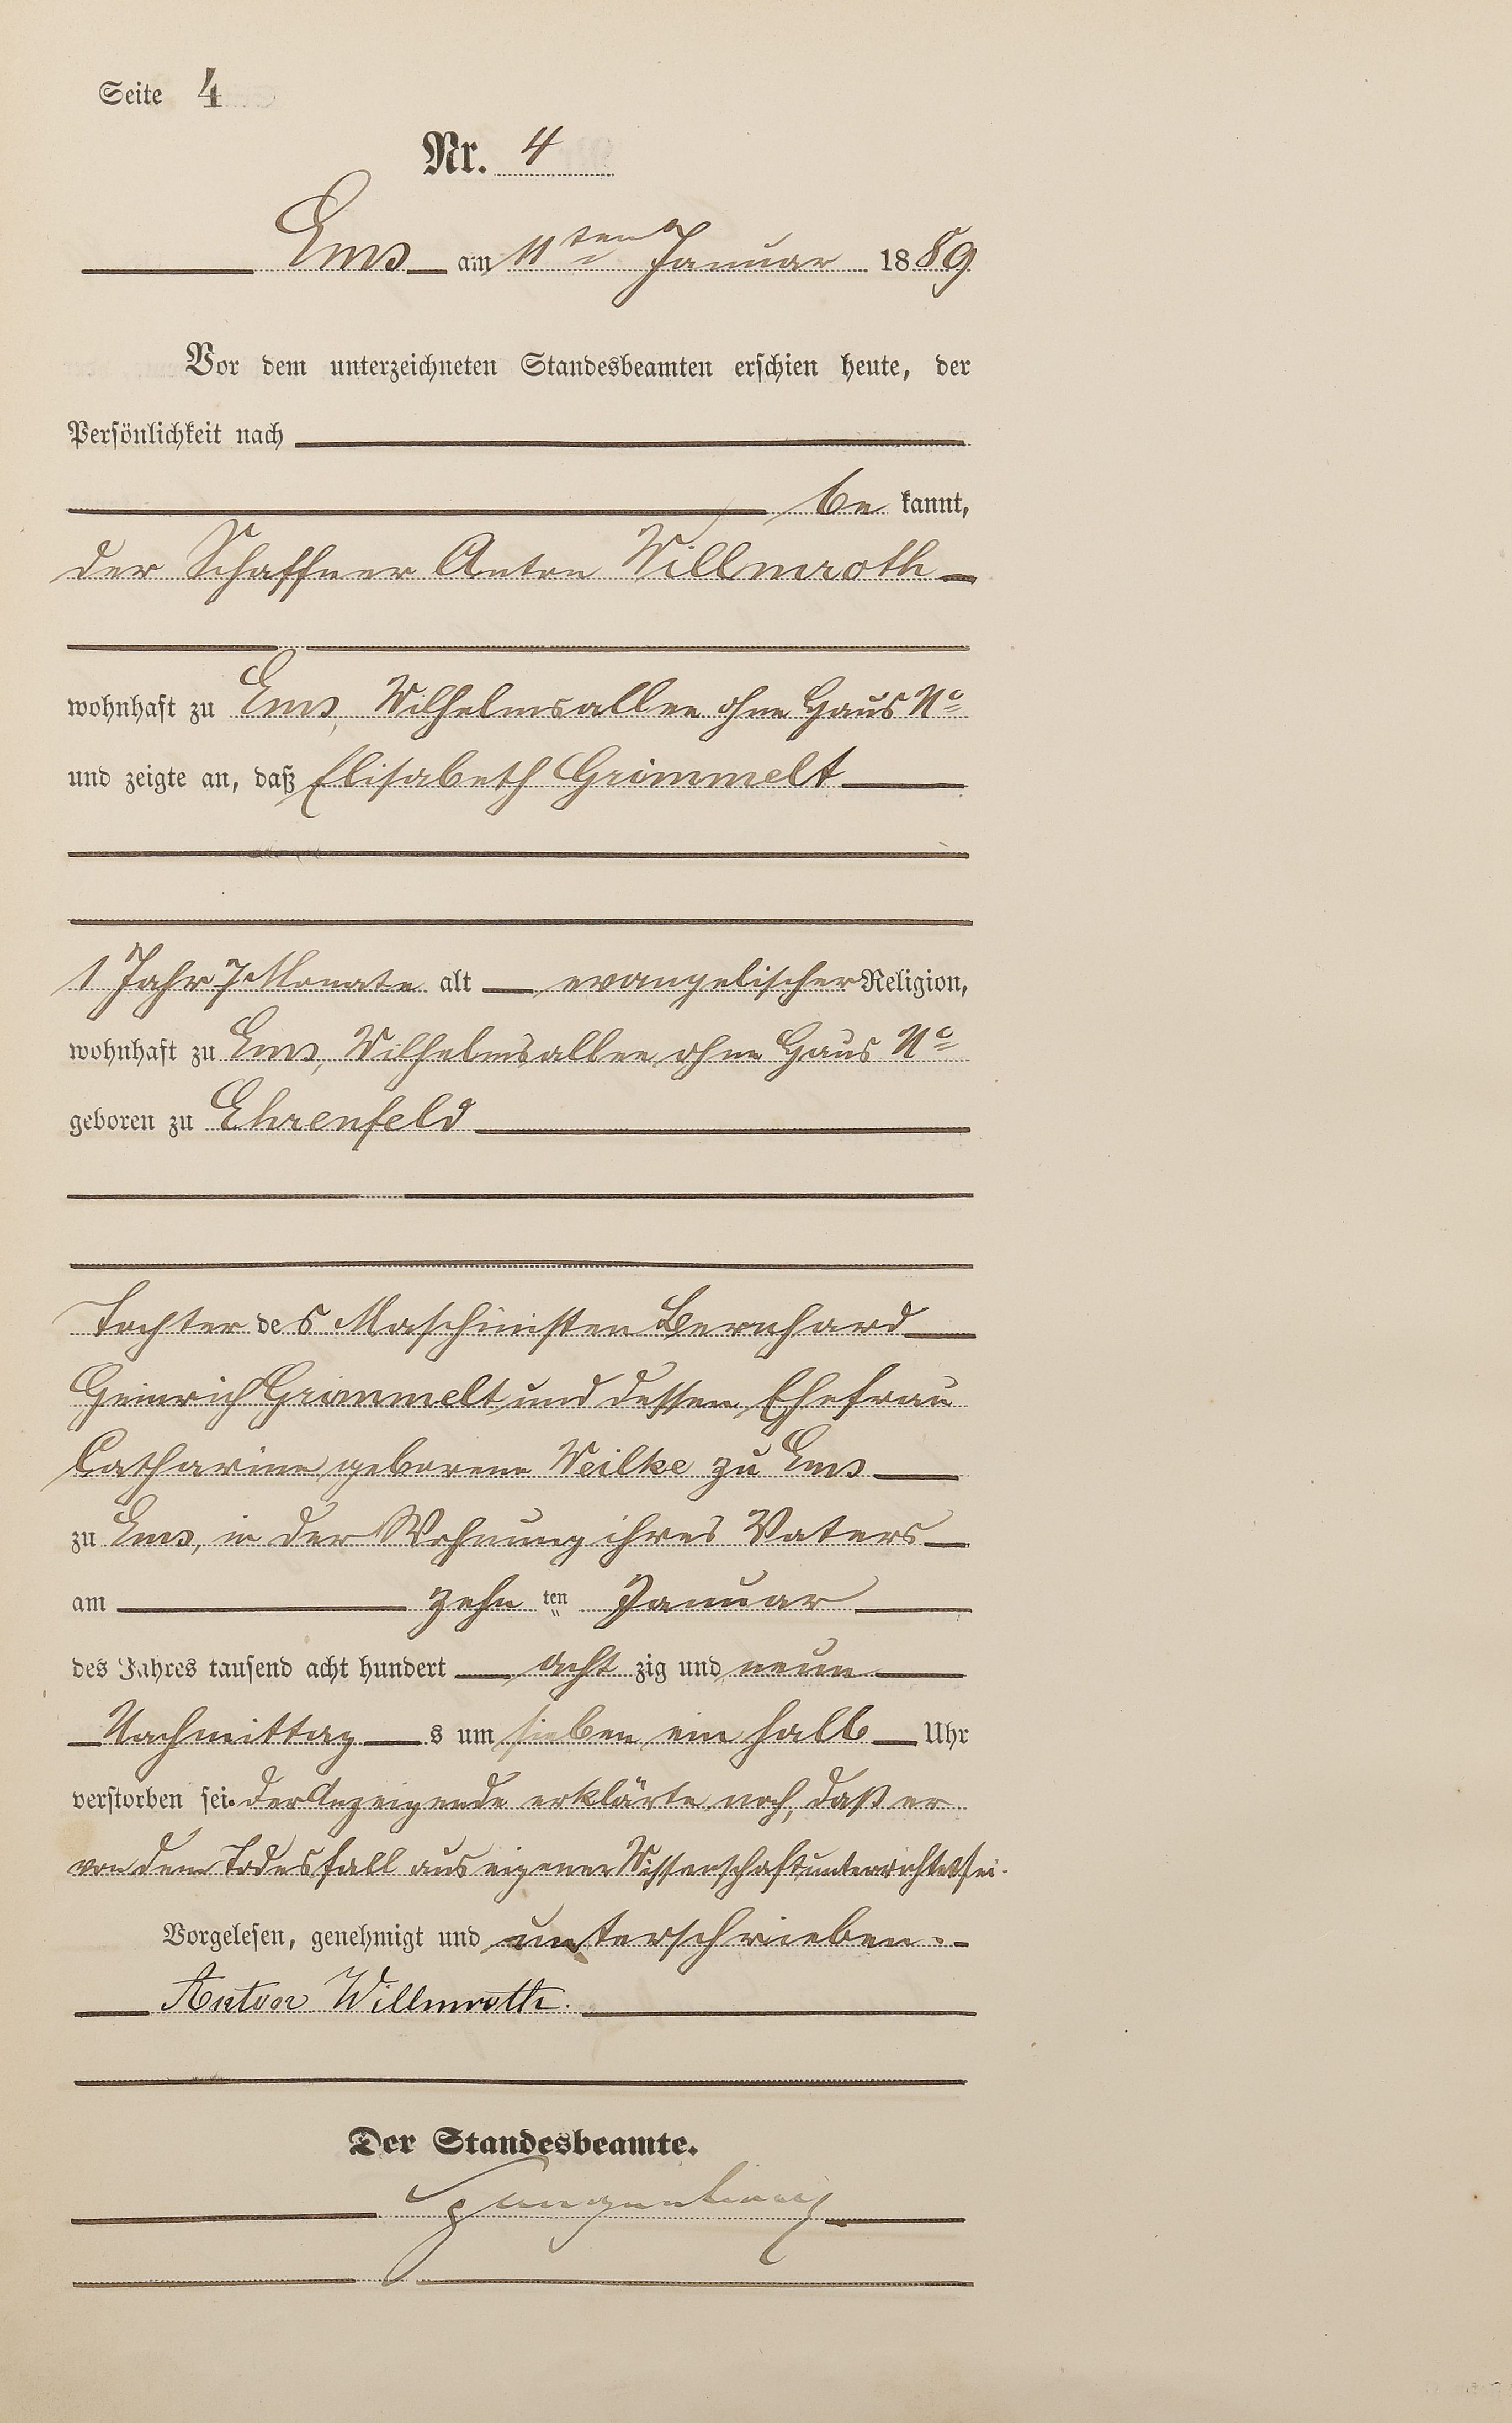 Seite 4
Nr. 4
Ems am 11ten Januar 1889
Vor dem unterzeichneten Standesbeamten erschien heute, der
Persönlichkeit nach
be kannt,
der Schaffner Anton Willmroth
wohnhaft zu Ems, Wilhelmsallee ohne Haus No
und zeigte an, daß Elisabeth Grimmelt
1 Jahr 7 Monate alt evangelischer Religion,
wohnhaft zu Ems, Wilhelmsallee ohne Haus No
geboren zu Ehrenfeld
Tochter des Maschinisten Bernhard
Heinrich Grimmelt und dessen Ehefrau
Catharine geborene Weilke zu Ems
zu Ems, in der Wohnung ihres Vaters
am zehn ten Januar
des Jahres tausend acht hundert acht zig und neun
Nachmittag s um sieben ein halb Uhr
verstorben sei. Der Anzeigende erklärte noch, daß er
von dem Todesfall aus eigener Wissenschaft unterrichtet sei.
Vorgelesen, genehmigt und unterschrieben.
Anton Willmroth.
Der Standesbeamte.